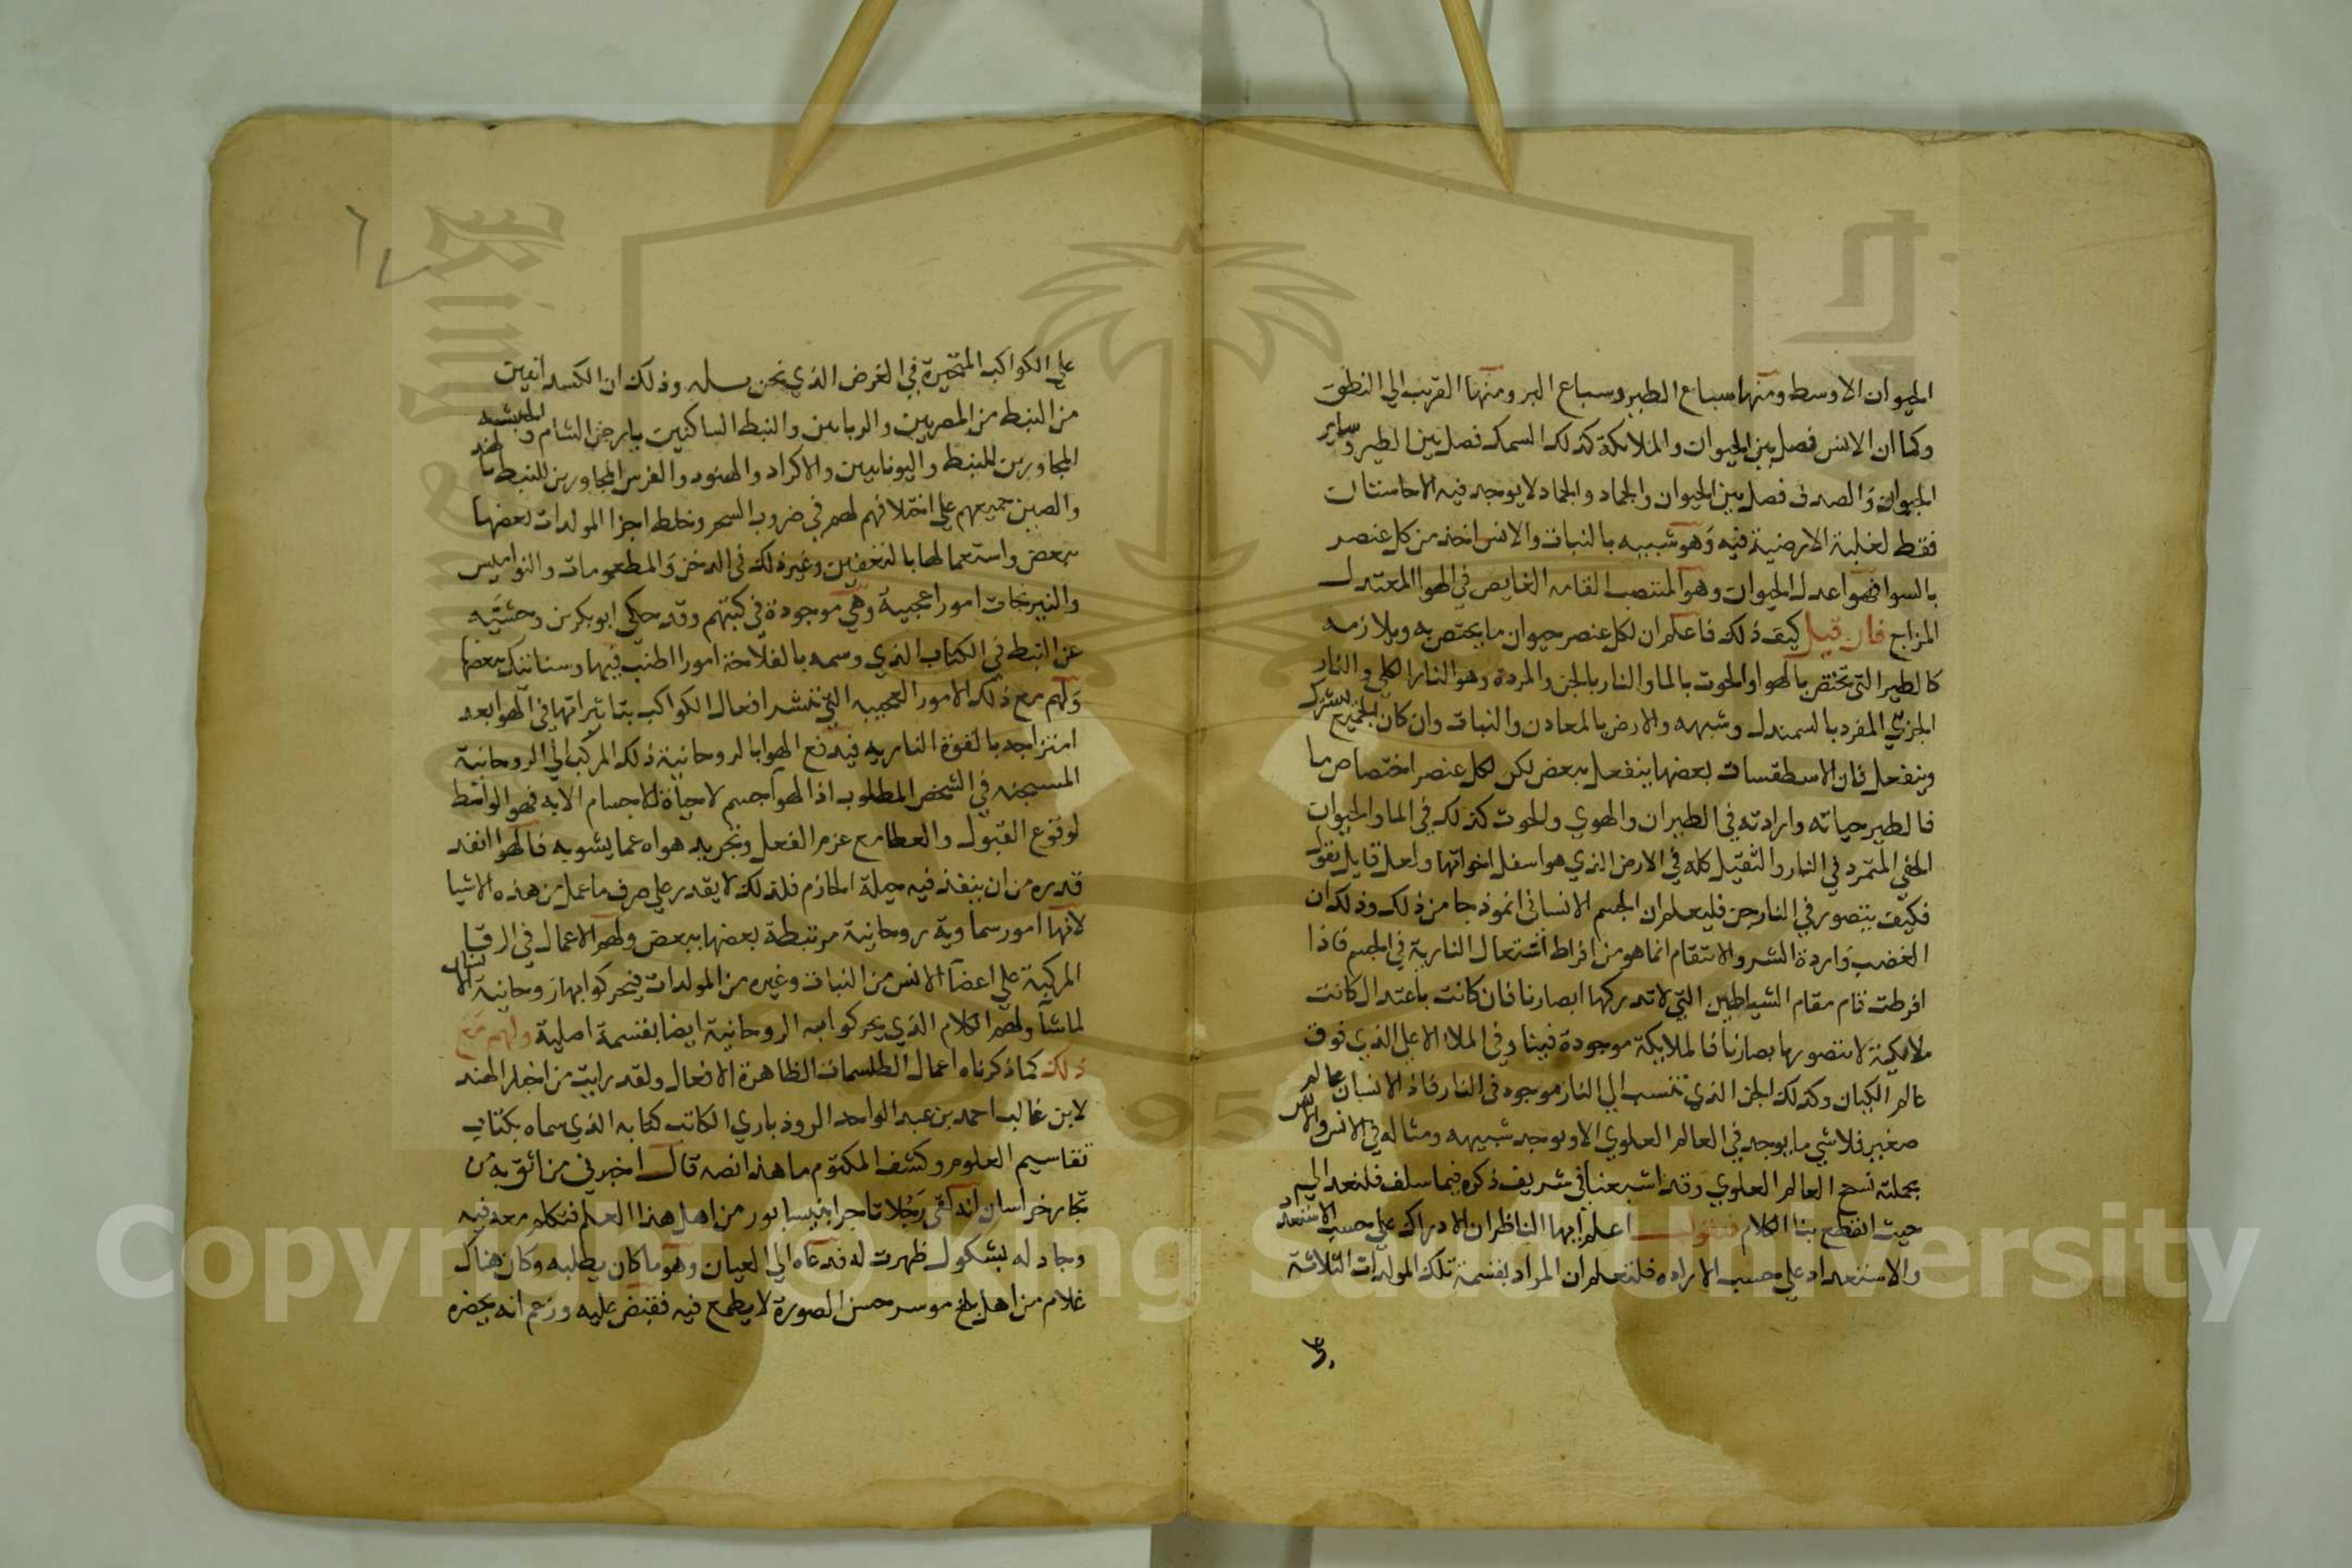 الحيوان الاوسط ومنها سباع الطير وسباع البر ومنها القريب الي النطق
وكما ان الانس فصل بين الحيوان والملائكة كذلك السمك فصل بين الطير وساير
الحيوان والصدف فصل بين الحيوان والجماد والجماد لا يوجد فيه الا حاستان
فقط لغلبة الارضية فيه وهو شبيه بالنبات والانس اخذ من كل عنصر
بالسوا فهو اعدل الحيوان وهو المنتصب القامه الغايص في الهوا المعتدل
المزاج فان قيل كيف ذلك فاعلم ان لكل عنصر حيوان ما يختص به ويلازمه
كالطير التي تختص بالهوا والحوت بالما والنار بالجن والمردة وهو النار الكلي والنار
الجزي المفرد بالسمندل وشبهه والارض بالمعادن والنبات وان كان الجميع يشترك
وينفعل فان الاسطقسات بعضها ينفعل ببعض لكن لكل عنصر اختصاص ما
فالطير حياته وارادته في الطيران والهوي والحوت كذلك في الما والحيوان
الخفي المتمرد في النار والثقيل كله في الارض الذي هو اسفل اخواتها ولعل قايل يقول
فكيف يتصور في النار جن فليعلم ان الجسم الانساني انموذجا من ذلك وذلك ان
الغضب واردة الشر والانتقام انما هو من افراط اشتعال النارية في الجسم فاذا
افرطت قام مقام الشياطين التي لا تدركها ابصارنا فان كانت باعتدال كانت
ملايكية لا تتصورها بصارنا فالملايكة موجودة فينا وفي الملاء الاعلي الذي فوق
عالم الكيان وكذلك الجن الذي تنتسب الي النار موجود في النار فاذ الانسان عالم
صغير فلا شي ما يوجد في العالم العلوي الا ويوجد شبيهه ومثاله في الانس والانس
بجملته نسخ العالم العلوي وقد اشبعنا في شريف ذكره فيما سلف فلنعد الي
حيث انقطع بنا الكلام فنقول اعلم ايها الناظر ان الادراك علي حسب الاستعد
والاستعداد علي حسب الاراده فلتعلم ان المراد بقسمة تلك المولدات الثلاثة
علي الكواكب المتحيرة في الغرض الذي نحن وذلك ان الكسدانيين
من النبط من المصريين والنبط الساكنين بارض الشام والحبشه
المجاورين للنبط واليونانيين والاكراد والهنود والفرس المجاورين للنبط
والصين جميعهم علي اختلافهم لهم في ضروب السحر وخلط اجزا المولدات بعضها
ببعض واستعمالها بالتعفين وغير ذلك في الدخن والمطعومات والنواميس
والنيرنجات امورا عجيبة وهي موجودة في كتبهم وقد حكي ابو بكر بن وحشيه
عن النبط في الكتاب الذي وسمه بالفلاحة امورا اطنب فيها وسناتنك ببعضها
ولهم مع ذلك الامور العجيبه التي افعال الكواكب بتاثيراتها في الهوا بعد
امتزاجه بالقوة الناريه فيدفع الهوا بالروحانية ذلك المركب الي الروحانية
المسجنه في الشخص المطلوب اذ الهوا جسم لا حياة للاجسام الا به فهو الواسط
لوقوع القبول والعطا مع عزم الفعل وتجريد هواه عما يشوبه فالهوا انفد
قدره من ان ينفذ فيه حيلة الحازم فلذلك لا يقدر علي صرف ما عمل من هذه الاشيا
لانها امور سماوية روحانية مرتبطة بعضها ببعض ولهم الاعمال في الرقيا
المركبة علي اعضا الانس من النبات وغيره من المولدات فيحركوا بها روحانية الانسان
لما شآ ولهم الكلام الذي يحركوا به الروحانية ايضا بقسمة اصلية ولهم مع
ذلك كما ذكرناه اعمال الطلسمات الظاهرة الافعال ولقد رايت من اخبار الهند
لابن غالب احمد بن عبد الواحد الروذباري الكاتب كتابه الذي سماه بكتاب
تقاسيم العلوم وكشف المكتوم ما هذا نصه قال اخبرني من اثق به من
تجار خراسان انه لقي رجلا تاجرا بنيسابور من اهل هذا العلم فتكلم معه فيه
وجادله بشكول ظهرت له فدعاه الي العيان وهو ما كان يطلبه وكان هناك
غلام من اهل بلخ موسر حسن الصورة لا يطمع فيه فقبض عليه وزعم انه يحضره
Copyright © King Saud University